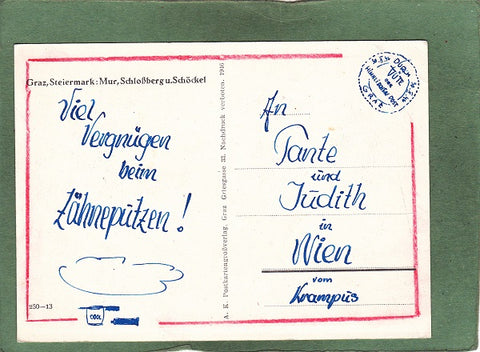 Graz, Steiermark: Mur, Schloßberg u. Schöckel
Viel
Vergnügen
beim
Zähneputzen!
250—13
COOL
A. K. Postkartengroßverlag, Graz Griesgasse 32, Nachdruck verboten. 1946
DURCH
GRAZ
WIEN
An
Tante
und
Judith
in
Wien
vom
Krampus